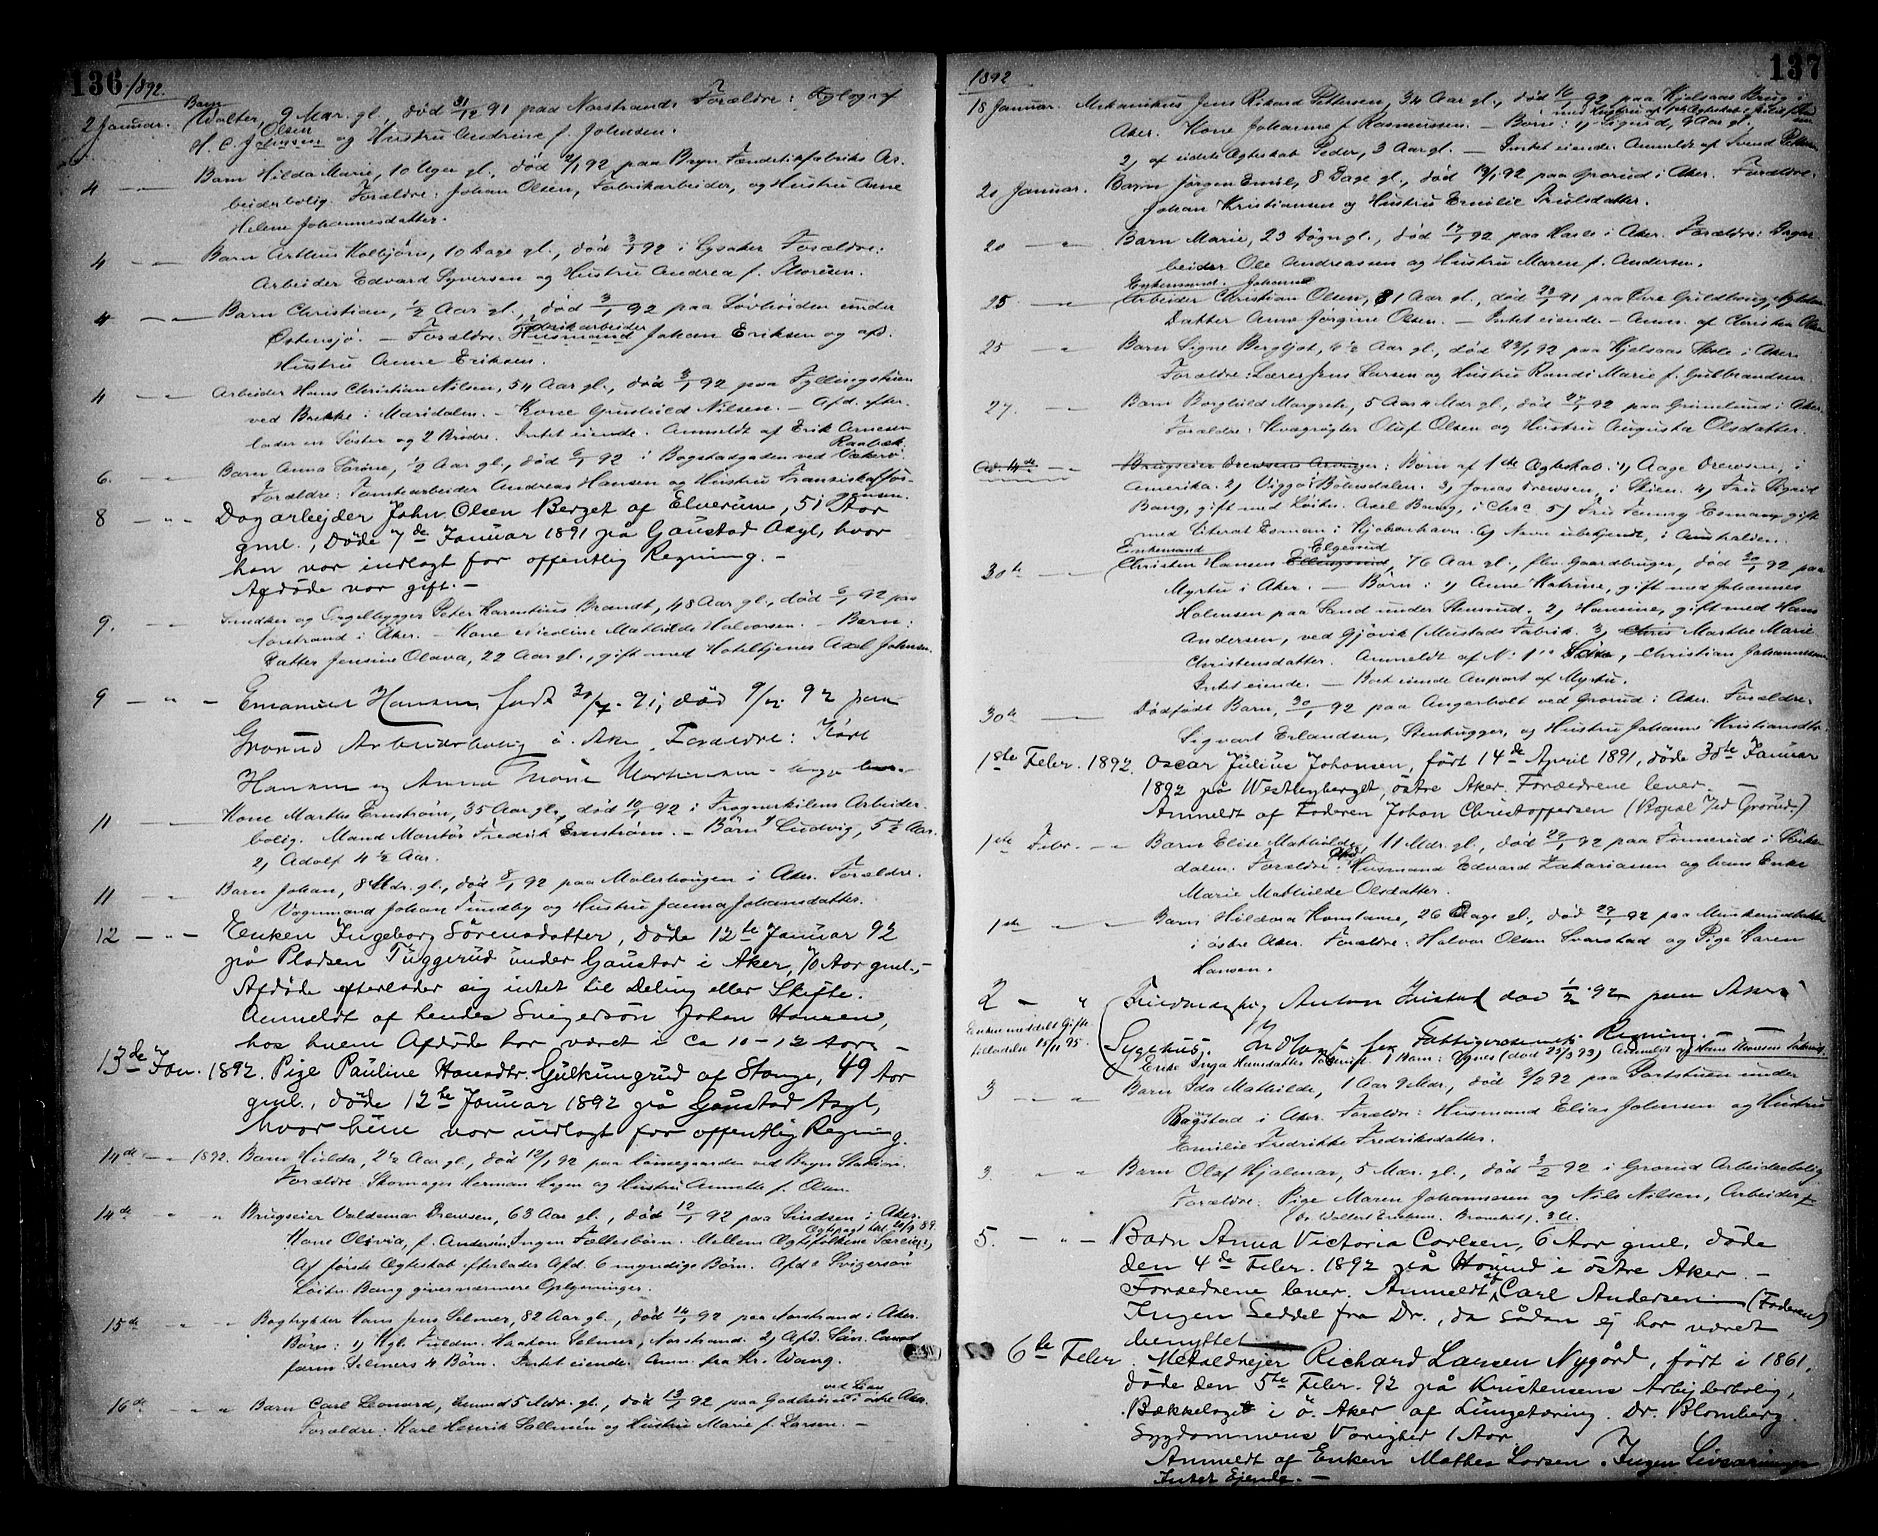 136
1892.
Barn
2 Januar. Walter, 9 Mdr. gl., død 31/12 91 paa Norstrand. Forældre:
Olsen
H. C. Johnsen og Hustru Andrine f. Johnsen.
4 — „ — Barn Hilda Marie, 10 Uger gl., død 2/1 92 paa Bryn Tændstikfabriks Ar-
beiderbolig. Forældre: Johan Olsen, Fabrikarbeider, og Hustru Anne
Helene Johannesdatter.
4 — „ — Barn Arthur Kolbjørn, 10 Dage gl., død 3/1 92 i Lysaker. Forældre:
Arbeider Edvard Syversen og Hustru Andrea f. Thoresen.
4 — „ — Barn Christian, 1/2 Aar gl., død 3/1 92 paa Løvheiden under
Fabrikarbeider
Østensjø. — Forældre: Husmand Johan Eriksen og afd.
Hustru Anne Eriksen.
4 — „ — Arbeider Hans Christian Nilsen, 54 Aar gl., død 3/1 92 paa
ved Brekke i Maridalen. — Kone Grushild Nilsen. — Afd. efter-
lader en Søster og 2 Brødre. Intet eiende. Anmeldt af Erik Arnesen
6. — „ — Barn Anna 1/2 Aar gl., død 6/1 92 i Bogstadgaden ved Vækerø.
Forældre: Tomtearbeider Andreas Hansen og Hustru
8 — „ — Dagarbejder John Olsen Berget af Elverum, 51 Aar
gml., døde 7de Januar 1891 på Gaustad Asyl, hvor
han var indlagt for offentlig Regning. —
Afdøde var gift. —
9. — „ — Snedker og Orgelbygger Peter Brandt, 48 Aar gl., død 6/1 92 paa
Norstrand i Aker. — Kone Nicoline Mathilde Halvorsen. — Barn:
Datter Jensine Olava, 22 Aar gl., gift med Axel Johnsen.
9 — „ — Emanuel Hansen født 30/7 91, død 9/1 92 paa
Grorud Arbeiderbolig i Aker. Forældre: Karl
Hansen og Anna
11 — „ — Kone Marthe Ernstrøm, 35 Aar gl., død 10/1 92 i Frognerkilens Arbeider-
bolig. Mand Fredrik Ernstrøm. — Børn: 1) Ludvig, 5 1/2 Aar.
2) Adolf 4 1/2 Aar.
11 — „ — Barn Johan, 8 Mdr. gl., død 8/1 92 paa Malerhaugen i Aker. Forældre.
Vognmand Johan Sundby og Hustru Janna Johansdatter.
12 — „ — Enken Ingeborg Sørensdatter, døde 12te Januar 92
på Pladsen Tuggerud under Gaustad i Aker, 70 Aar gml.,
Afdøde efterlader sig intet til Deling eller Skifte.
Anmeldt af hendes Svigersön Johan Hansen,
hos hvem Afdøde har været i Ca 10–12 Aar. —
13de Jan. 1892. Pige Pauline Hansdtr. Gulkungrud af Stange, 49 Aar
gml., døde 12te Januar 1892 på Gaustad Asyl,
hvor hun var indlagt for offentlig Regning.
14de — „ 1892. Barn Hulda, 2 1/2 Aar gl., død 12/1 92 paa ved Bryn Station.
Forældre: Skomager Herman og Hustru Annette f. Olsen.
14de „ „ Brugseier Valdemar Drewsen, 63 Aar gl., død 12/1 92 paa Sindsen i Aker.
Kone Olivia, f. Andersen. Ingen Fællesbørn. Mellem Ægtefolkene Særeie,
Af første Ægteskab efterlader Afd. 6 myndige Børn. Afd.s Svigersøn
Løitn. Bang giver nærmere Oplysninger.
15de „ „ Bogtrykker Hans Jens Selmer, 82 Aar gl., død 14/1 92 paa Norstrand i Aker.
Børn: 1) Haaton Selmer, Norstrand. 2) Afd. Søn
Selmers 4 Børn. Intet eiende. Anm. fra Kr. Wang.
16de — „ „ Barn Carl Leonard, 5 Mdr. gl., død 13/1 92 paa i østre Aker.
Forældre: Karl Henrik og Hustru Marie f. Larsen. —
137
1892
18 Januar. Mekanikus Jens Rikard Pettersen, 34 Aar gl., død 16/1 92 paa Kjelsaas Brug i
Aker. Kone Johanne f. Rasmussen. — Børn: 1) Sigurd, 9 Aar gl.,
2) af sidste Ægteskab Peder, 3 Aar gl. — Intet eiende. Anmeldt af Svend
20 Januar. Barn Jørgen Emil, 8 Dage gl., død 19/1 92 paa Grorud i Aker. Forældre:
Johan Kristiansen og Hustru Emilie Trulsdatter.
20 — „ Barn Marie, 23 Døgn gl., død 17/1 92 paa Hasle i Aker. Forældre: Dagar-
beider Ole Andreassen og Hustru Maren f. Andersen.
Enkemand
25. — „ Arbeider Christian Olsen, 81 Aar gl., død 23/1 91 paa
Datter Anne Jørgine Olsen. — Intet eiende. — Anm. af Christian Olsen
25 — „ Barn Signe Bergljot, 6 1/2 Aar gl., død 23/1 92 paa Kjelsaas Skole i Aker.
Forældre: Lærer Jens Larsen og Hustru Randi Marie f. Gulbrandsen.
27. — „ Barn Borghild Margrete, 5 Aar Mdr. gl., død 27/1 92 paa Grimelund i Aker.
Forældre: Kvægrøgter Oluf Olsen og Hustru Augusta Olsdatter.
Ad 14de — „ Brugseier Drewsens Arvinger: Børn af 1ste Ægteskab: 1) Aage Drewsen, i
Amerika. 2) Viggo i Bøhmsdalen. 3) Jonas Drewsen, i Skien. 4) Fru Sigrid
Bang, gift med Løitn. Axel Bang, i Chra. 5) Fru Fanny Esmann gift
med Literat Esman i Kjøbenhavn. 6) Navn ubekjendt, i Australien.
Enkemand Elgesrud
30te — „ Christen Hansen Ellingsrud, 76 Aar gl., flm. Gaardbruger, død 30/1 92 paa
Myrtu i Aker. — Børn: 1) Anne Katrine, gift med Johannes
Holmsen paa Sand under Stensrud. 2) Hansine, gift med Hans
Andersen, ved Gjøvik (Mustads Fabrik. 3) Chris Marthe Marie
Christensdatter. Anmeldt af No 1's Søn, Christian Johannessen
Intet eiende. — Boet eiende Anpart af Myrtu.
30te — „ Dødfødt Barn, 30/1 92 paa Angerholt ved Grorud i Aker. Forældre.
Sigvart Erlandsen, Stenhugger, og Hustru Johanne Kristiansdtr.
1ste Febr. 1892. Oscar Julius Johansen, født 14de April 1891, døde 30te Januar
1892 på Westlyberget, østre Aker. Forældrene lever. —
Anmeldt af Faderen Johan Christoffersen (Bopæl Ved Grorud.)
1ste Febr. — „ Barn Elise Mathilde, 11 Mdr. gl., død 29/1 92 paa Finnerud i Sørke-
dalen. Forældre: Afd. Husmand Edvard Zakariasen og hans Enke
Marie Mathilde Olsdatter.
1ste „ „ Barn Hildora Konstanse, 26 Dage gl., død 29/1 92 paa
i østre Aker. Forældre: Halvor Olsen Svarstad og Pige Karen
Hansen.
2 — „ Anton død 1/2 92 paa Akers
Enken meddelt Gifte-
tilladelse 15/11 95.
Sygehus. Indlagt for Fattigvæsenets Regning. —
3 — „ Barn Ida Mathilde, 1 Aar 9 Mdr., død 3/2 92 paa Portstuen under
Bogstad i Aker. Forældre: Husmand Elias Johnsen og Hustru
Emilie Fredrikke Fredriksdatter.
3. „ „ Barn Olaf Hjalmar, 5 Mdr. gl., død 3/2 92 i Grorud Arbeiderbolig
Forældre: Pige Maren Johannesen og Nils Nilsen, Arbeider
5. — „ — Barn Anna Victoria Carlsen, 6 Aar gml. døde
den 4de Febr. 1892 på i östre Aker. —
Forældrene lever. Anmeldt af Carl Andersen (Faderen)
Ingen Seddel fra Dr., da sådan ej har været
benyttet
6te Febr. Metaldrejer Richard Larsen Nygård, født i 1861,
døde den 5te Febr. 92 på Kristensens Arbejderbolig,
Bækkelaget i ö. Aker af Lungetæring. Dr. Blomberg.
Sygdommens Varighed 1 Aar
Anmeldt af Enken Mathea Larsen. Ingen Livsarvinger
Intet Ejende. —